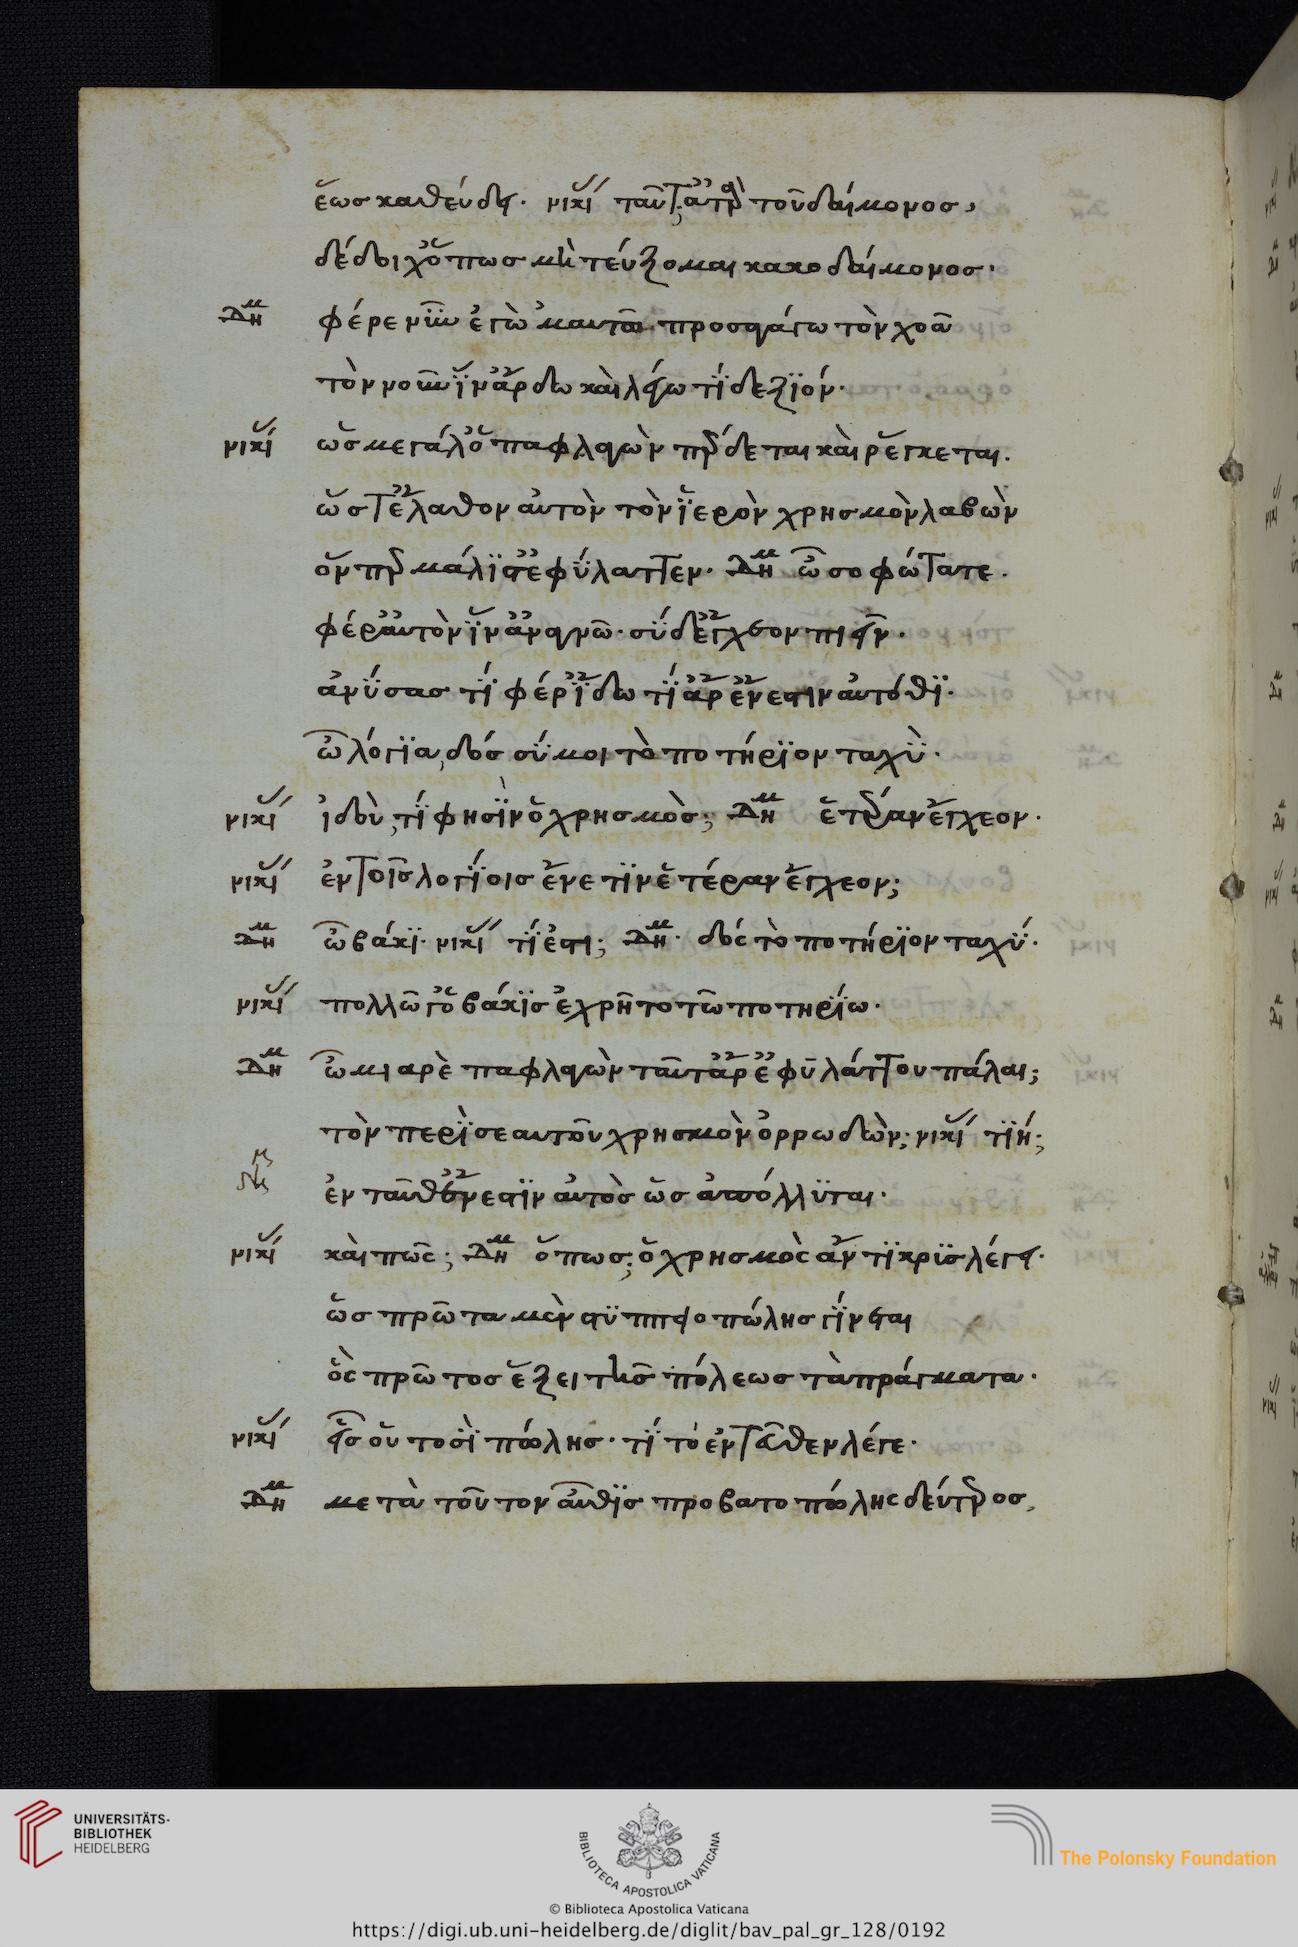 ἕως καθεύδει. νικί ταῦτ'· ἀτὰρ τοῦ δαίμονος,
δέδοιχ' ὅπως μὴ τεύξομαι κακοδαίμονος.
Δημ φέρε νῦν ἐγὼ 'μαυτῶ προσαγάγω τὸν χοᾶ
τὸν νοῦν ἵν' ἄρδω καὶ λέγω τί δεξϊόν.
νικί ὡς μεγάλ' ὁ παφλαγὼν πέρδεται καὶ ῥέγκεται.
ὥστ' ἔλαθον αὐτὸν τὸν ἱερὸν χρησμὸν λαβὼν
ὅνπερ μάλϊστ' ἐφύλαττεν. Δημ ὦ σοφώτατε.
φέρ' αὐτὸν ἵν' ἀναγνῶ. σὺ δ' ἔγχεον πιεῖν.
ἀνύσας τί φέρ' ἴδω τί ἄρ' ἔνεστιν αὐτόθϊ.
ὦ λόγϊα, δός σύ μοι τὸ ποτήρϊον ταχύ.
νικί ἰδοὺ, τί φησὶν ὁ χρησμὸς; Δημ ἑτέραν ἔγχεον.
νικί ἐν τοῖς λογίοις ἔνεστϊν ἑτέραν ἔγχεον;
Δημ ὦ βάκϊ. νικί τί ἐστι; Δημ. δός τὸ ποτήρϊον ταχύ.
νικί πολλῶ γ' ὁ βάκϊς ἐχρῆτο τῶ ποτηρίω.
Δημ ὦ μιαρὲ παφλαγὼν ταῦτ' ἄρ' ἐφυλάττου πάλαι;
τὸν περὶ σεαυτοῦ χρησμὸν ὀρρωδῶν; νικί τϊή;
Δημ ἐν ταῦθ' ἔνεστϊν αὐτὸς ὡς ἀπόλλϋται.
νικί καὶ πῶς; Δημ ὅπως; ὁ χρησμὸς ἄντϊκρϊς λέγει.
ὡς πρῶτα μὲν στϋππειοπώλης γίνεται
ὃς πρῶτος ἕξει τῆς πόλεως τὰ πράγματα.
νικί εἷς οὑτοσὶ πώλης. τί τὸ ἐντεῦθεν λέγε.
Δημ μετὰ τοῦτον αὖθϊς προβατοπώλης δεύτερος,
UNIVERSITÄTS-
BIBLIOTHEK
HEIDELBERG
BIBLIOTECA APOSTOLICA VATICANA
The Polonsky Foundation
© Biblioteca Apostolica Vaticana
https://digi.ub.uni-heidelberg.de/diglit/bav_pal_gr_128/0192